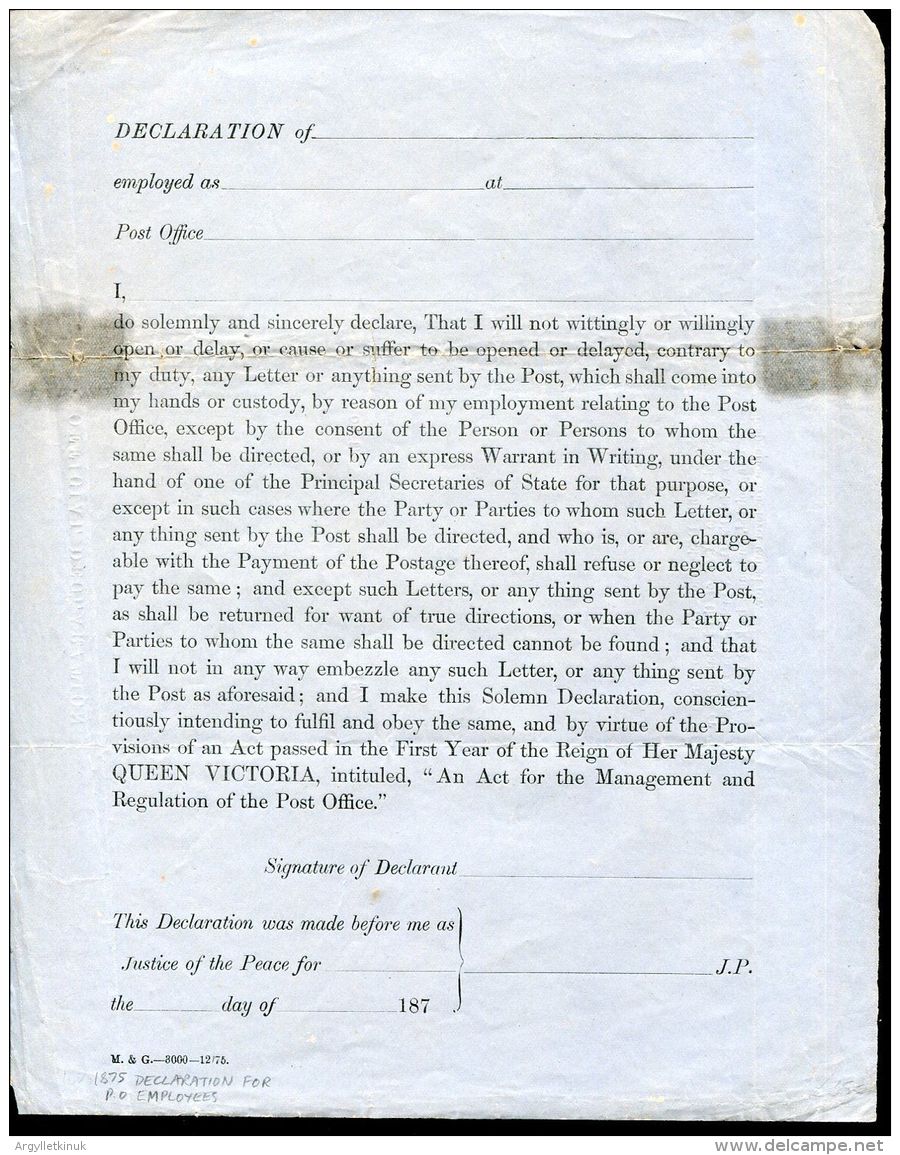 DECLARATION of
employed as at
Post Office
I,
do solemnly and sincerely declare, That I will not wittingly or willingly
open or delay, or cause or suffer to be opened or delayed, contrary to
my duty, any Letter or anything sent by the Post, which shall come into
my hands or custody, by reason of my employment relating to the Post
Office, except by the consent of the Person or Persons to whom the
same shall be directed, or by an express Warrant in Writing, under the
hand of one of the Principal Secretaries of State for that purpose, or
except in such cases where the Party or Parties to whom such Letter, or
any thing sent by the Post shall be directed, and who is, or are, charge-
able with the Payment of the Postage thereof, shall refuse or neglect to
pay the same; and except such Letters, or any thing sent by the Post,
as shall be returned for want of true directions, or when the Party or
Parties to whom the same shall be directed cannot be found; and that
I will not in any way embezzle any such Letter, or any thing sent by
the Post as aforesaid; and I make this Solemn Declaration, conscien-
tiously intending to fulfil and obey the same, and by virtue of the Pro-
visions of an Act passed in the First Year of the Reign of Her Majesty
QUEEN VICTORIA, intituled, “An Act for the Management and
Regulation of the Post Office.”
Signature of Declarant
This Declaration was made before me as
Justice of the Peace for J.P.
the day of 187
M. & G.—3000—12/75.
1875 DECLARATION FOR
P.O EMPLOYEES
Argylletkinuk
www.delcampe.net